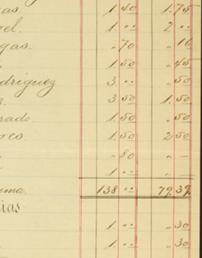 as 1 40 1.75
el. 1 " 2 "
gas. " 70 " 16
1 50 " 45
odriguez 3 " " 50
3 50 1 50
rado 1 50 " 50
1 50 2 50
" 80 " -
uma 138 " 79 39
ias
1 " " 30
1 " " 30